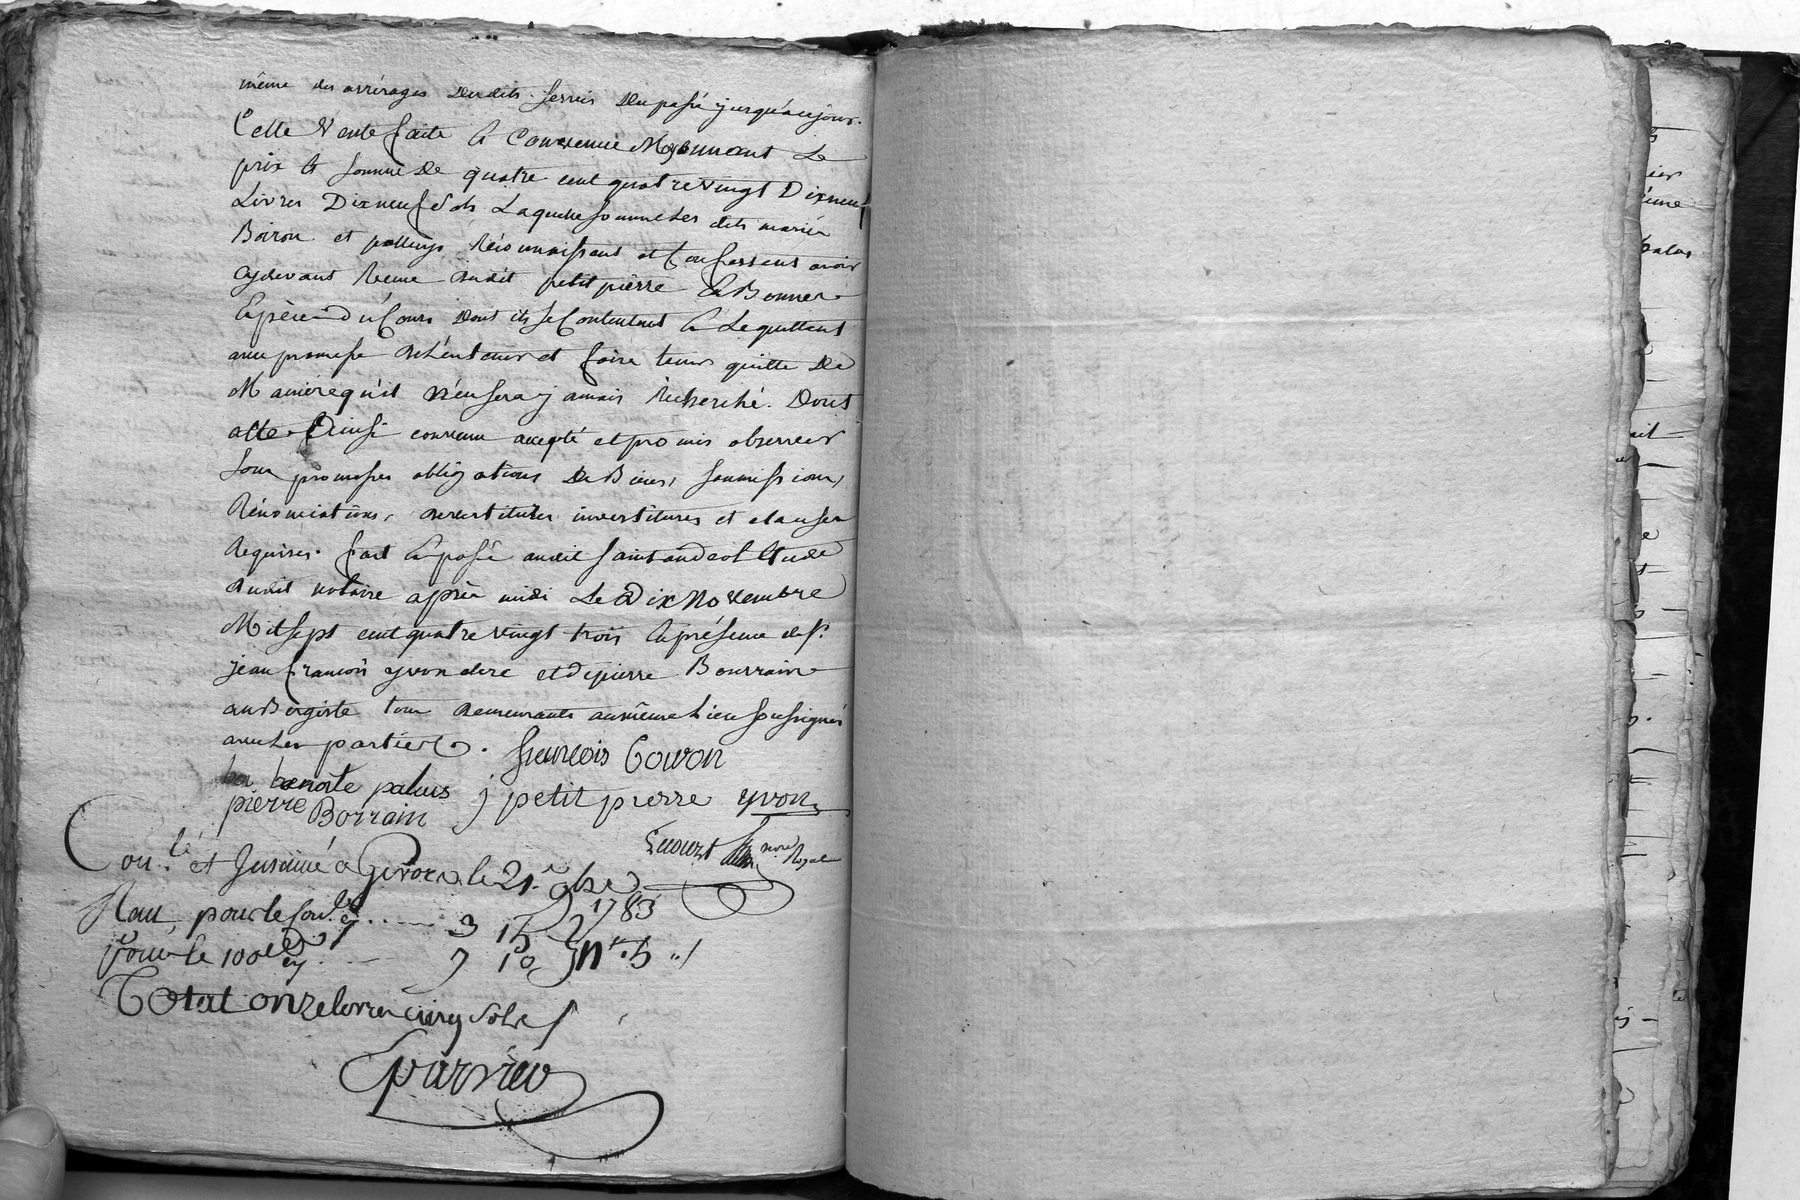 même des arrérages desdits servis du passé jusqu'à ce jour.
Cette Vente faite & Convenue Moyennant Le
prix & somme de quatre cent quatre vingt Dixneuf
Livres Dixneuf sols Laquelle somme les dits mariés
Boiron et palluys Réconnaissent et Confessent avoir
cydevant Reçue dudit petit pierre En Bonnes
Espèces du Cours dont ils se Contentent & Le quittent
avec promesse de l'en tenir et faire tenir quitte De
Manière qu'il n'en sera jamais Recherché. Dont
acte. Ainsi convenu accepté et promis observer
sous promesses obligations de Biens, soumissions,
Rénonciations, devestitures investitures et clauses
Requises. fait & passé audit saint andeol Etude
dudit notaire après midi Le Dix Novembre
Mil sept cent quatre vingt trois En présence de Sr.
jean françois yvon clerc et de pierre Bourrain
auBergiste tous demeurants au même Lieu soussignés
avec les parties.
françois Boiron
benoite paluis j petit pierre yvon
pierre Borrain
nre Royal
Con.lé et Insinué a Givors le 21.e 9bre 1783
Rau, pour le Con.le 3 15
pour le 100e d. 7 10 11 tt. 5 s
Total onze livres cinq sols
Eparvier
ier